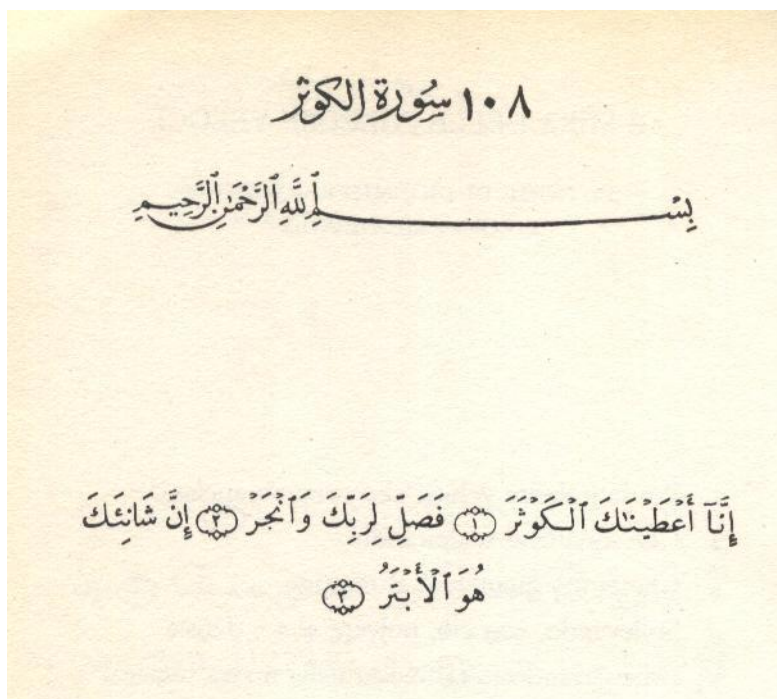 ١٠٨ سُورَة الكوثر
بِسْمِ ٱللَّهِ ٱلرَّحْمَٰنِ ٱلرَّحِيمِ
إِنَّآ أَعْطَيْنَٰكَ ٱلْكَوْثَرَ ١ فَصَلِّ لِرَبِّكَ وَٱنْحَرْ ٢ إِنَّ شَانِئَكَ
هُوَ ٱلْأَبْتَرُ ٣